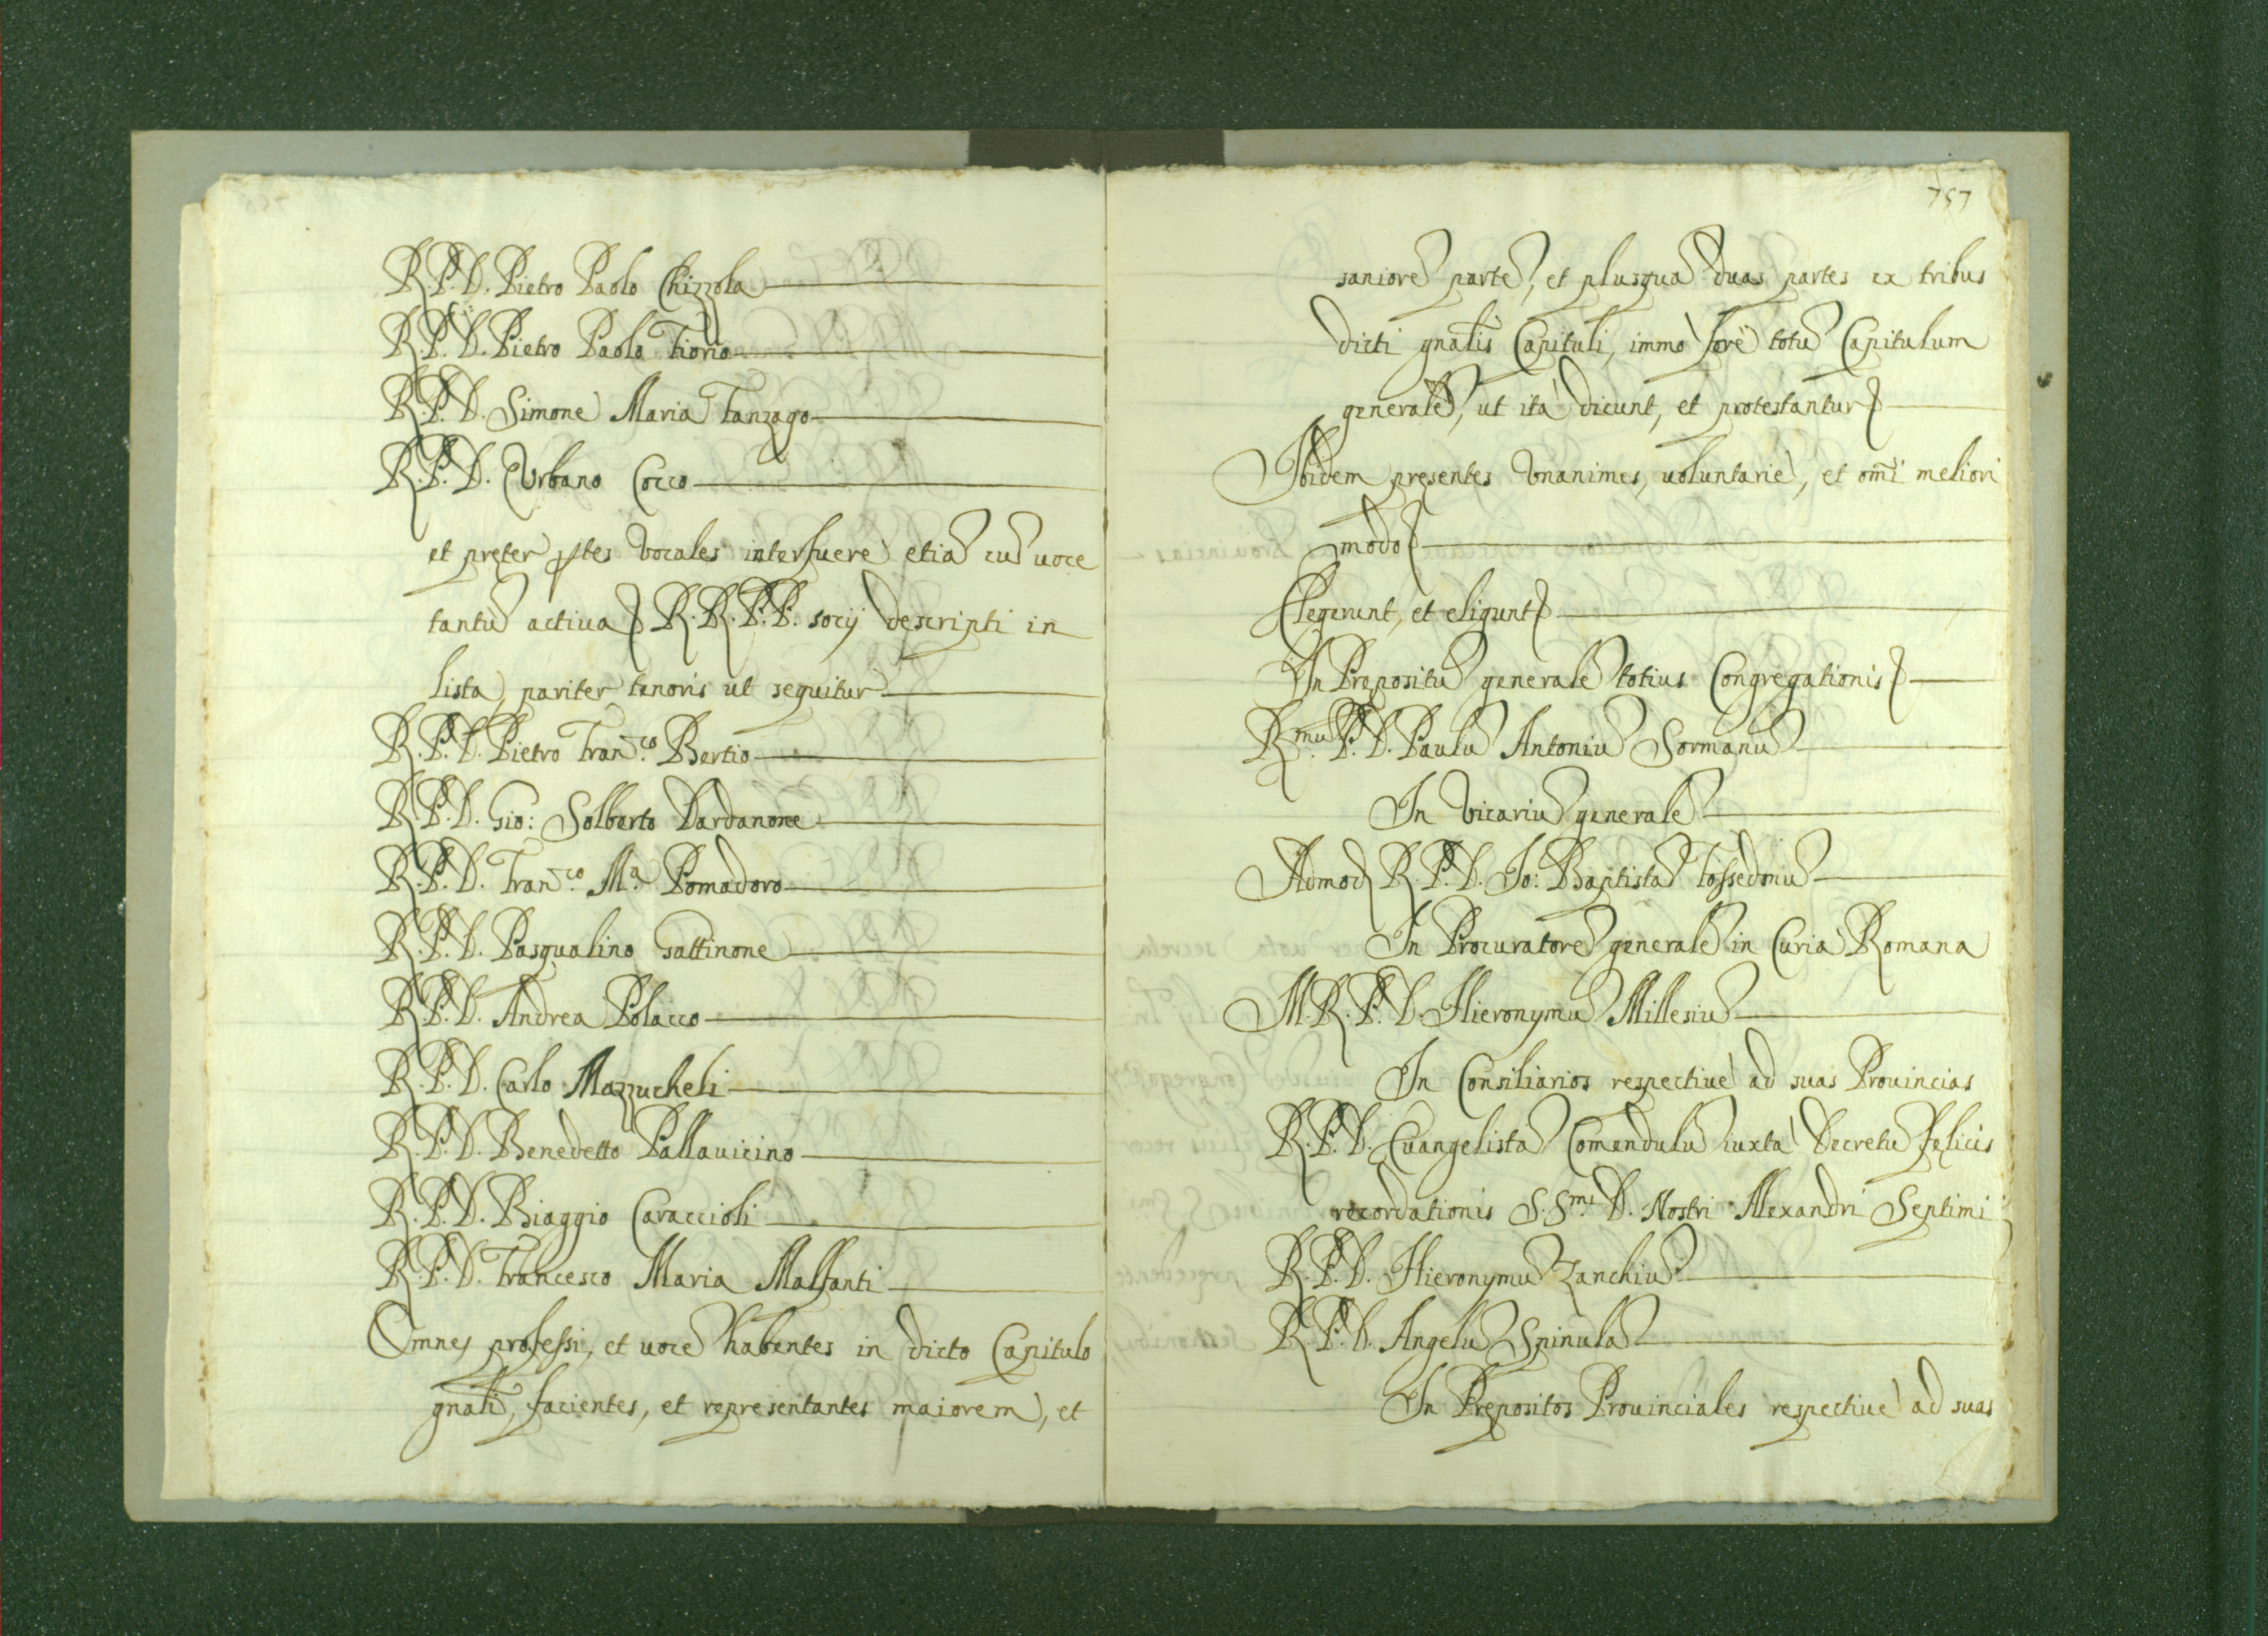 R. P. D. Pietro Paolo Chizzola
R. P. D. Pietro Paolo Fiorio
R. P. D. Simone Maria Fanzago
R. P. D. Urbano Cocco
et preter ptes vocales interfuere etia cu uoce
tantu actiua R. R. P. P. socij descripti in
lista, pariter tenoris ut sequitur
R. P. D. Pietro Fran.co Bertio
R. P. D. Gio: Solberto Dardanone
R. P. D. Fran.co M.a Pomadoro
R. P. D. Pasqualino Gattinone
R. P. D. Andrea Polacco
R. P. D. Carlo Mazzucheli
R. P. D. Benedetto Pallauicino
R. P. D. Biaggio Caraccioli
R. P. D. Francesco Maria Malfanti
Omnes professi, et uoce habentes in dicto Capitulo
gnali, facientes, et representantes maiorem, et
757
saniore parte, et plusqua duas partes ex tribus
dicti gnalis Capituli, immo fere totu Capitulum
generale, ut ita dicunt, et protestantur
Ibidem presentes Vnanimes, uoluntarie, et omi meliori
modo
Elegerunt, et eligunt
In Prepositu generale totius Congregationis
R.mu P. D. Paulu Antoniu Sormanu
In Vicariu generale
Admod R. P. D. Jo: Baptista Fossedoniu
In Procuratore generale in Curia Romana
M. R. P. D. Hieronymu Millesiu
In Consiliarios respectiue ad suas Prouincias
R. P. D. Euangelista Comendulu iuxta Decretu felicis
recordationis S. S.mi D. Nostri Alexandri Septimi
R. P. D. Hieronymu Zanchiu
R. P. D. Angelu Spinula
In Prepositos Prouinciales respectiue ad suas